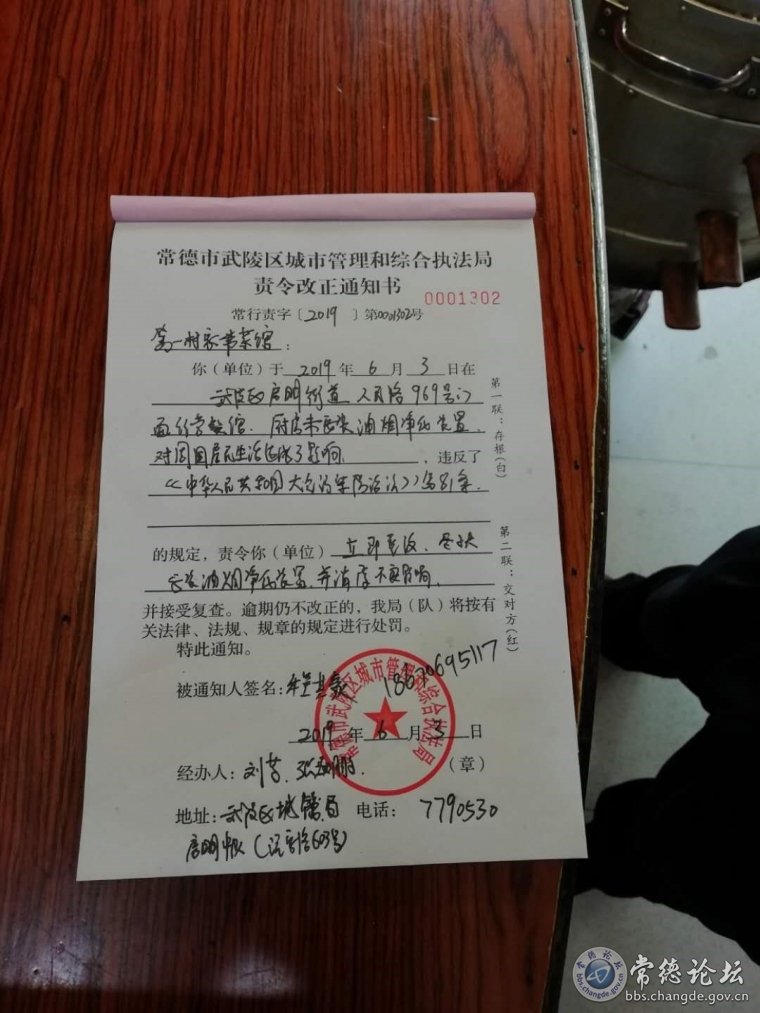 常德市武陵区城市管理和综合执法局
责令改正通知书
0001302
常行责字〔2019〕第0001302号
家常菜馆:
你（单位）于 2019 年 6 月 3 日在
武陵区启明街道人民路969号门
面经营餐馆.厨房未安装油烟净化装置.
对周围居民生活造成了影响 ，违反了
《中华人民共和国大气污染防治法》第81条.
的规定，责令你（单位）立即整改.
安装油烟净化装置.并消除不良影响.
并接受复查。逾期仍不改正的，我局（队）将按有
关法律、法规、规章的规定进行处罚。
特此通知。
被通知人签名:
18670695117
常德市武陵区城市管理和综合执法局
2019 年 6 月 3 日
经办人：刘
（章）
地址：武陵区城管局 电话： 7790530
启明中队(沅安路603号)
第一联：存根(白)
第二联：交对方(红)
常德论坛
bbs.changde.gov.cn